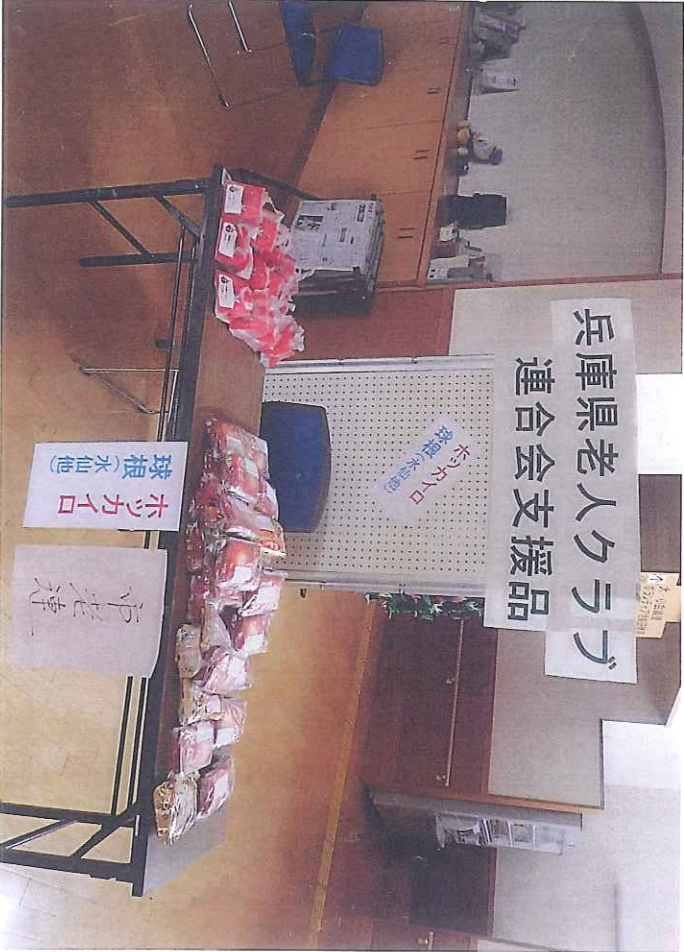 兵庫県老人クラブ
連合会支援品
ホッカイロ
球根(水仙他)
ホッカイロ
球根(水仙他)
市老連